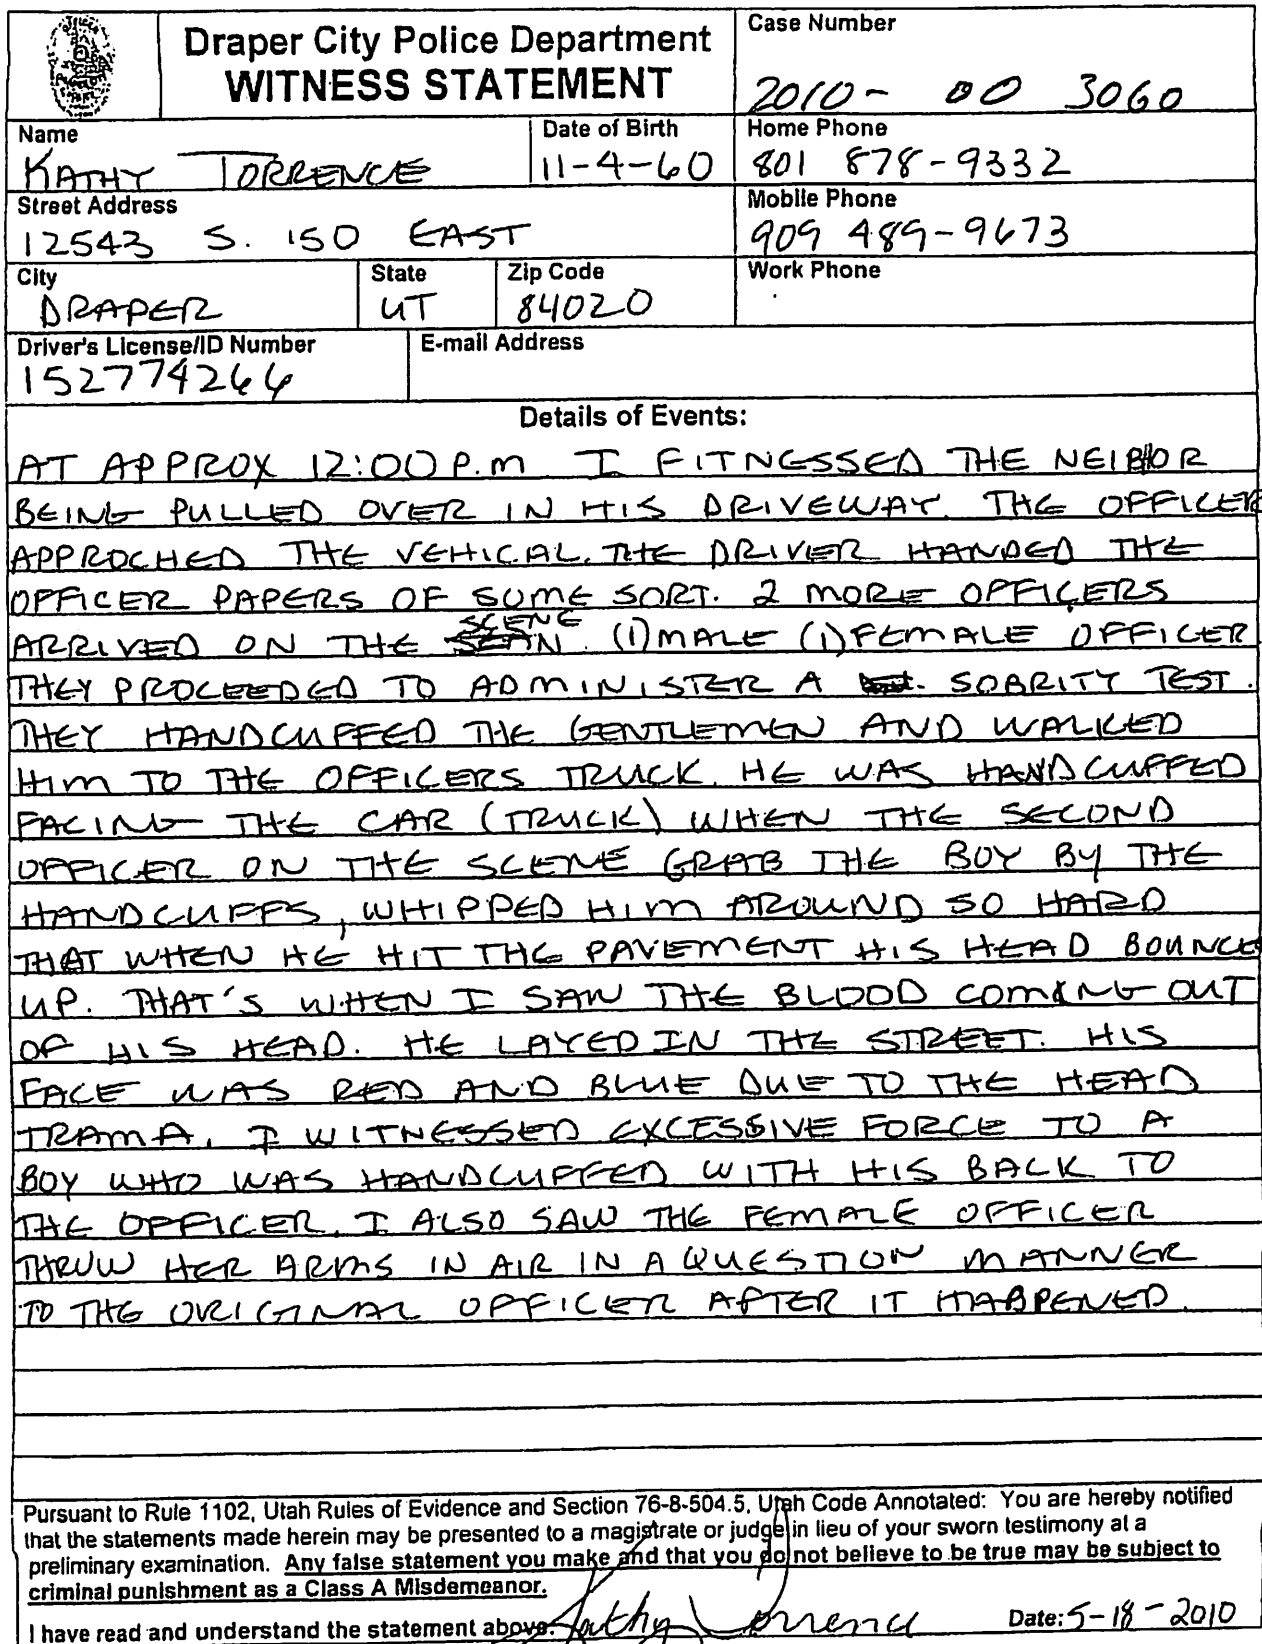 Draper City Police Department
WITNESS STATEMENT
Case Number
2010- 00 3060
Name
KATHY TORRENCE
Date of Birth
11-4-60
Home Phone
801 878-9332
Street Address
12543 S. 150 EAST
Mobile Phone
909 489-9673
City
DRAPER
State
UT
Zip Code
84020
Work Phone
Driver's License/ID Number
152774266
E-mail Address
Details of Events:
AT APPROX 12:00 P.m I FITNESSED THE NEIBHOR
BEING PULLED OVER IN HIS DRIVEWAY. THE OFFICER
APPROCHED THE VEHICAL. THE DRIVER HANDED THE
OFFICER PAPERS OF SUME SORT. 2 MORE OFFICERS
ARRIVED ON THE SCENE. (1) MALE (1) FEMALE OFFICER
THEY PROCEEDED TO ADMINISTER A SOBRITY TEST.
THEY HANDCUFFED THE GENTLEMEN AND WALKED
HIM TO THE OFFICERS TRUCK. HE WAS HANDCUFFED
FACING THE CAR (TRUCK) WHEN THE SECOND
OFFICER ON THE SCENE GRAB THE BOY BY THE
HANDCUFFS, WHIPPED HIM AROUND SO HARD
THAT WHEN HE HIT THE PAVEMENT HIS HEAD BOUNCE
UP. THAT'S WHEN I SAW THE BLOOD COMING OUT
OF HIS HEAD. HE LAYED IN THE STREET. HIS
FACE WAS RED AND BLUE DUE TO THE HEAD
TRAMA. I WITNESSED EXCESSIVE FORCE TO A
BOY WHO WAS HANDCUFFED WITH HIS BACK TO
THE OFFICER. I ALSO SAW THE FEMALE OFFICER
THRUW HER ARMS IN AIR IN A QUESTION MANNER
TO THE ORIGINAL OFFICER AFTER IT HAPPENED.
Pursuant to Rule 1102, Utah Rules of Evidence and Section 76-8-504.5, Utah Code Annotated: You are hereby notified
that the statements made herein may be presented to a magistrate or judge in lieu of your sworn testimony at a
preliminary examination. Any false statement you make and that you do not believe to be true may be subject to
criminal punishment as a Class A Misdemeanor.
I have read and understand the statement above. Kathy Torrence Date: 5-18-2010